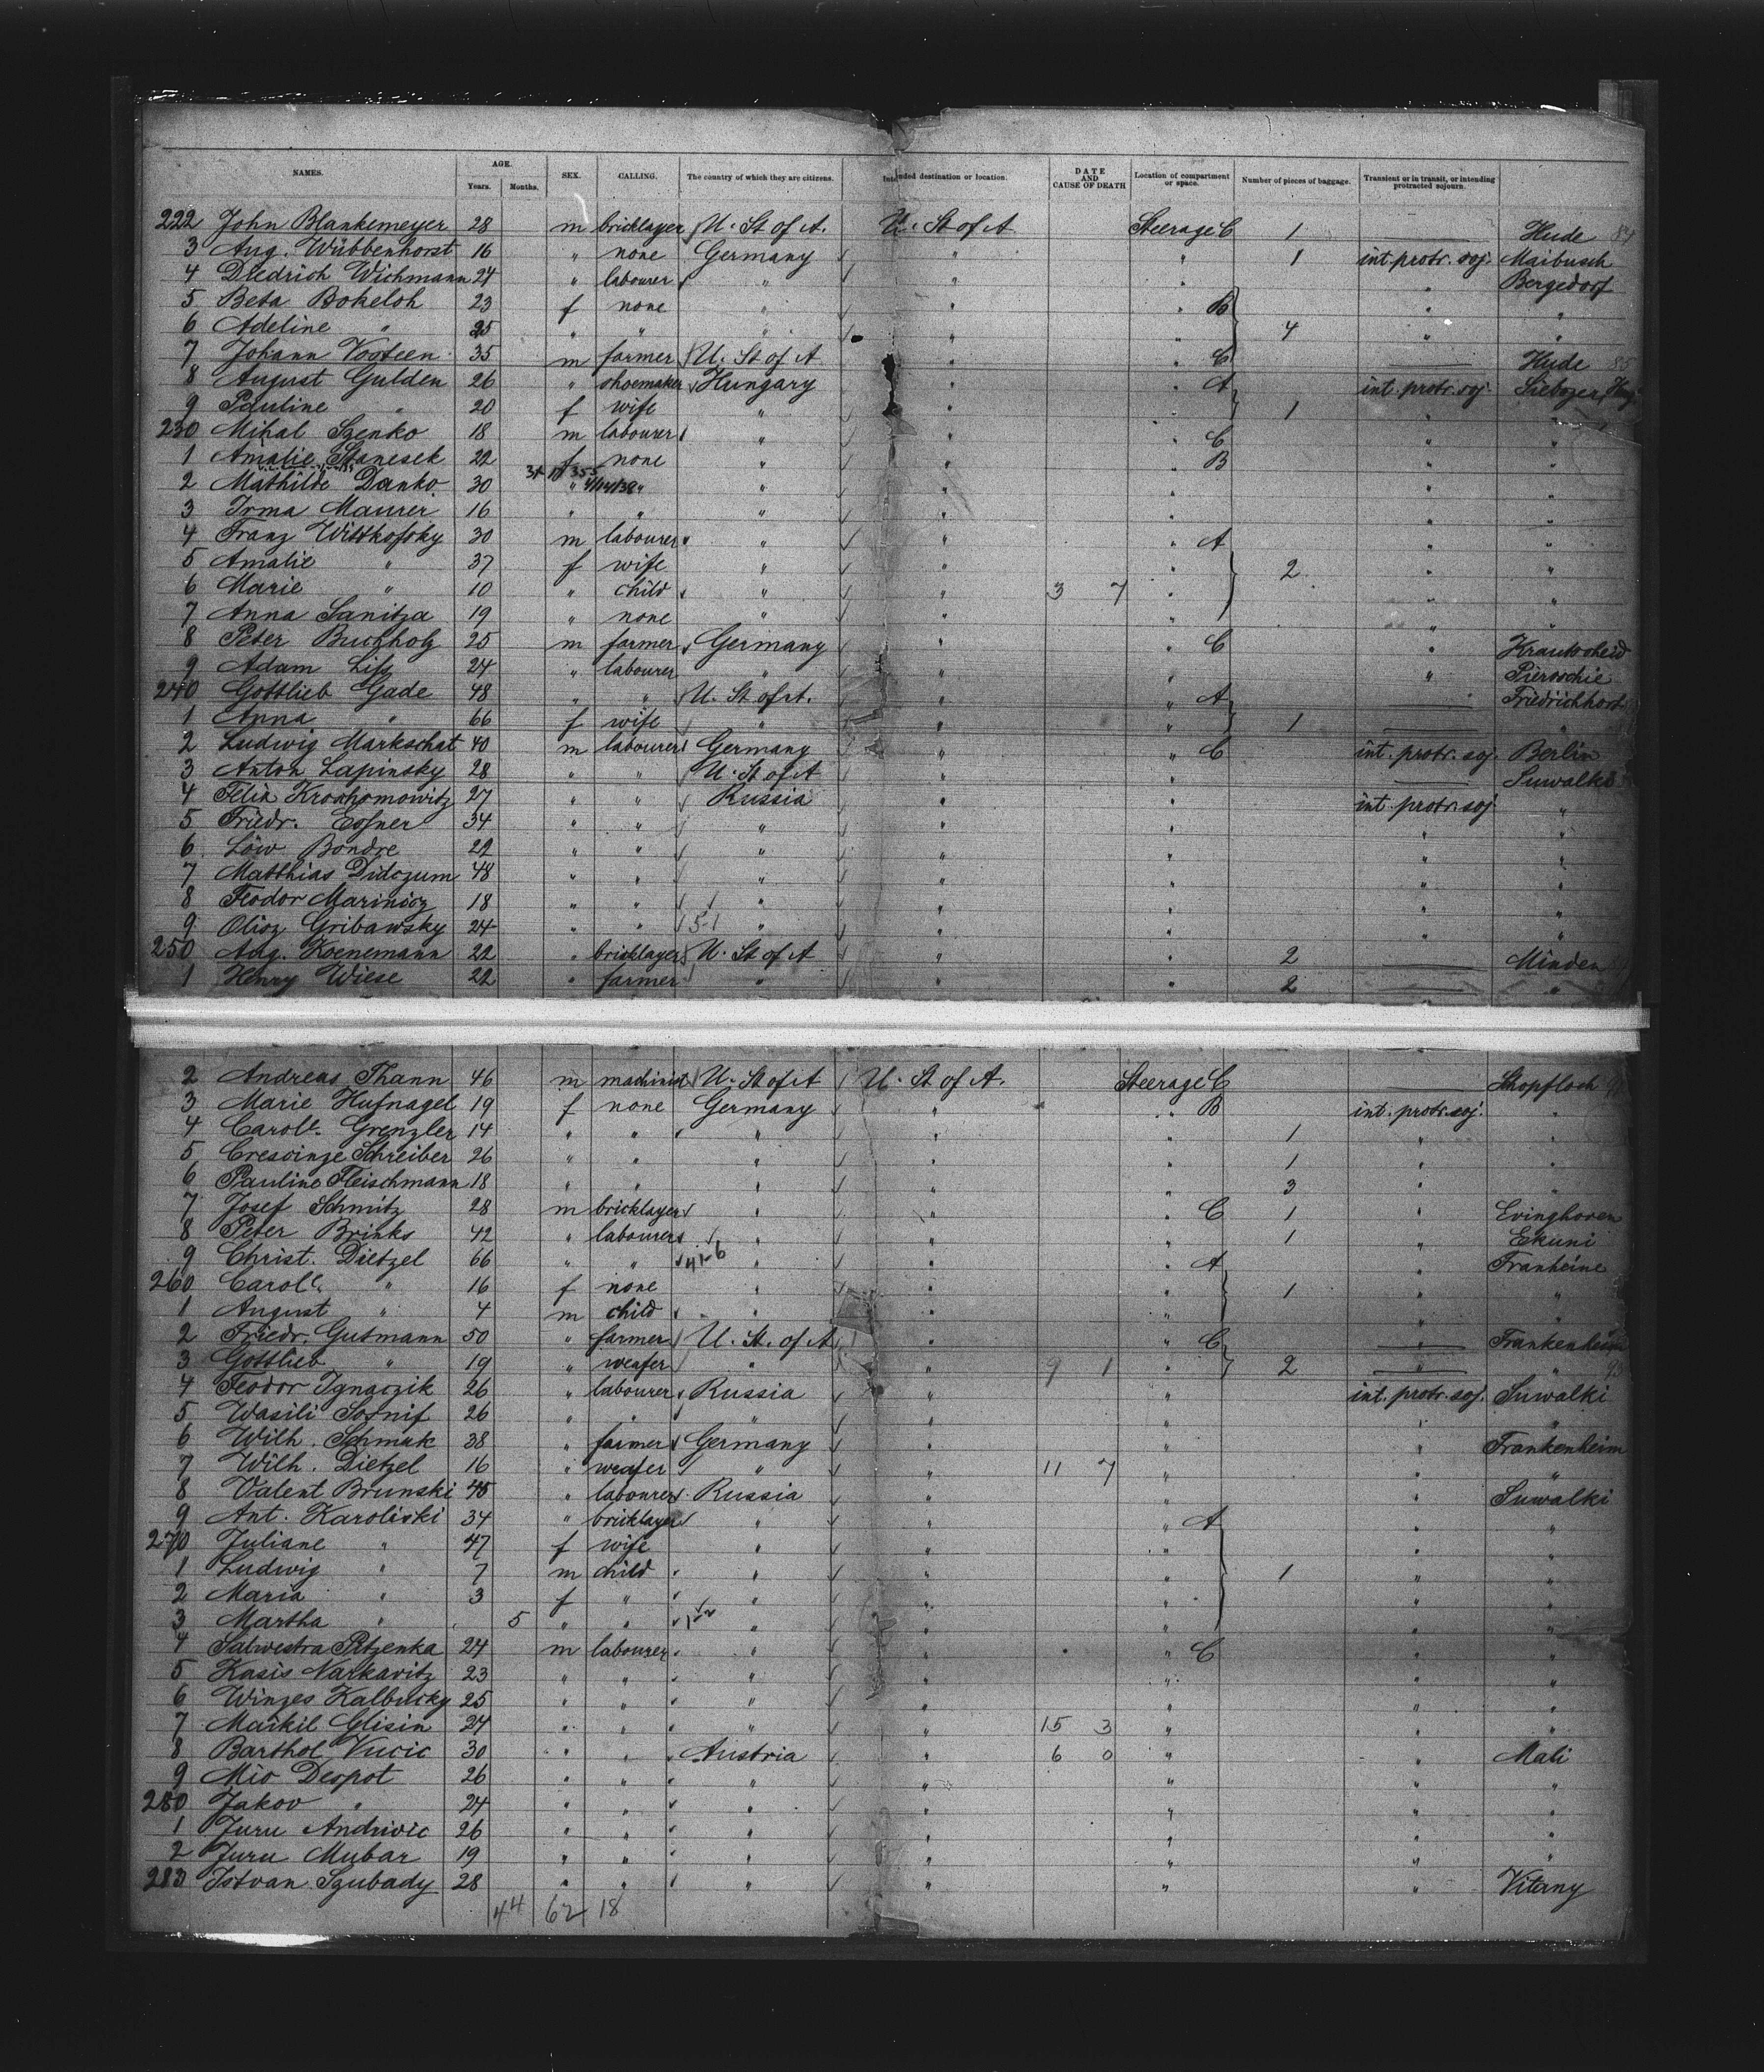 NAMES. AGE. Years. Months. SEX. CALLING. The country of which they are citizens. Intended destination or location. DATE AND CAUSE OF DEATH Location of compartment or space. Number of pieces of baggage. Transient or in transit, or intending protracted sojourn.
222 John Blankemeyer 28 m bricklayer U. St of A. U. St of A Steerage C 1 Hude 84
3 Aug. Wübbenhorst 16 " none Germany " " 1 int. protr. soj. Maibusch
4 Diedrich Wichmann 24 " labourer " " " " Bergedorf
5 Beta Bokeloh 23 f none " " " B " "
6 Adeline " 25 " " " " " 4 " "
7 Johann Vosteen 35 m farmer U. St of A " " C Hude 85
8 August Gulden 26 " shoemaker Hungary " " A int. protr. soj.
9 Pauline " 20 f wife " " " 1 " "
230 Mihal Szenko 18 m labourer " " " C " "
1 Amalie Stanesek 22 f none " " " B " "
2 Mathilde Danko 30 " " " " " " "
3 Irma Maurer 16 " " " " " " "
4 Franz Wittkofsky 30 m labourer " " " A " "
5 Amalie " 37 f wife " " " 2 " "
6 Marie " 10 " child " " 3 7 " " "
7 Anna Sanitza 19 " none " " " " "
8 Peter Buchholz 25 m farmer Germany " " C "
9 Adam Liss 24 " labourer " " " "
240 Gottlieb Gade 48 " " U. St of A. " " A Friedrichhort
1 Anna " 66 f wife " " " 1 "
2 Ludwig Markschat 40 m labourer Germany " " C int. protr. soj. Berlin
3 Anton Lapinsky 28 " " U. St of A " " Suwalki
4 Felix 27 " " Russia " " int. protr. soj "
5 Friedr. Essner 34 " " " " " " "
6 Löw Bondre 22 " " " " " " "
7 Matthias Didozum 48 " " " " " " "
8 Feodor Marinicz 18 " " " " " " "
9 Olioz Gribawsky 24 " " 5-1 " " " " "
250 Aug. Koenemann 22 " bricklayer U. St of A " " 2 Minden
1 Henry Wiese 22 " farmer " " " 2 "
2 Andreas Thann 46 m machinist U. St of A U. St of A. Steerage C Shopfloch
3 Marie Hufnagel 19 f none Germany " " B int. protr. soj. "
4 Carole. Grenzler 14 " " " " " 1 " "
5 Crescinze Schreiber 26 " " " " " 1 " "
6 Pauline Fleischmann 18 " " " " " 3 " "
7 Josef Schmitz 28 m bricklayer " " " C 1 " Evinghoven
8 Peter Brinks 42 " labourer " " " 1 " Ekuni
9 Christ. Dietzel 66 " " 41-6 " " " A " Franheine
260 Carole. " 16 f none " " " 1 " "
1 August " 4 m child " " " " "
2 Friedr. Gutmann 50 " farmer U. St. of A " " C Frankenheim
3 Gottlieb " 19 " weafer " " 9 1 " 2 " " 93
4 Feodor Ignaczik 26 " labourer Russia " " int. protr. soj. Suwalki
5 Wasili Sosnif 26 " " " " " " "
6 Wilh. Schmuk 38 " farmer Germany " " " Frankenheim
7 Wilh. Dietzel 16 " weafer " " 11 7 " " "
8 Valent Brunski 45 " labourer Russia " " " Suwalki
9 Ant. Karoliski 34 " bricklayer " " " A " "
270 Juliane " 47 f wife " " " " "
1 Ludwig " 7 m child " " " 1 " "
2 Maria " 3 f " " " " " "
3 Martha " 5 " " " " " " "
4 Salwestra Pitzenka 24 m labourer " " " C " "
5 Kasis Narkavitz 23 " " " " " " "
6 Winzes Kalbucky 25 " " " " " " "
7 Maikil Glisin 24 " " " " 15 3 " " "
8 Barthol Vucic 30 " " Austria " 6 0 " " Mali
9 Mio Despot 26 " " " " " " "
280 Jakov " 24 " " " " " " "
1 Juru Andrivic 26 " " " " " " "
2 Juru Mubar 19 " " " " " " "
283 Istvan Szubady 28 " " " " " " Vitany
44 62 18